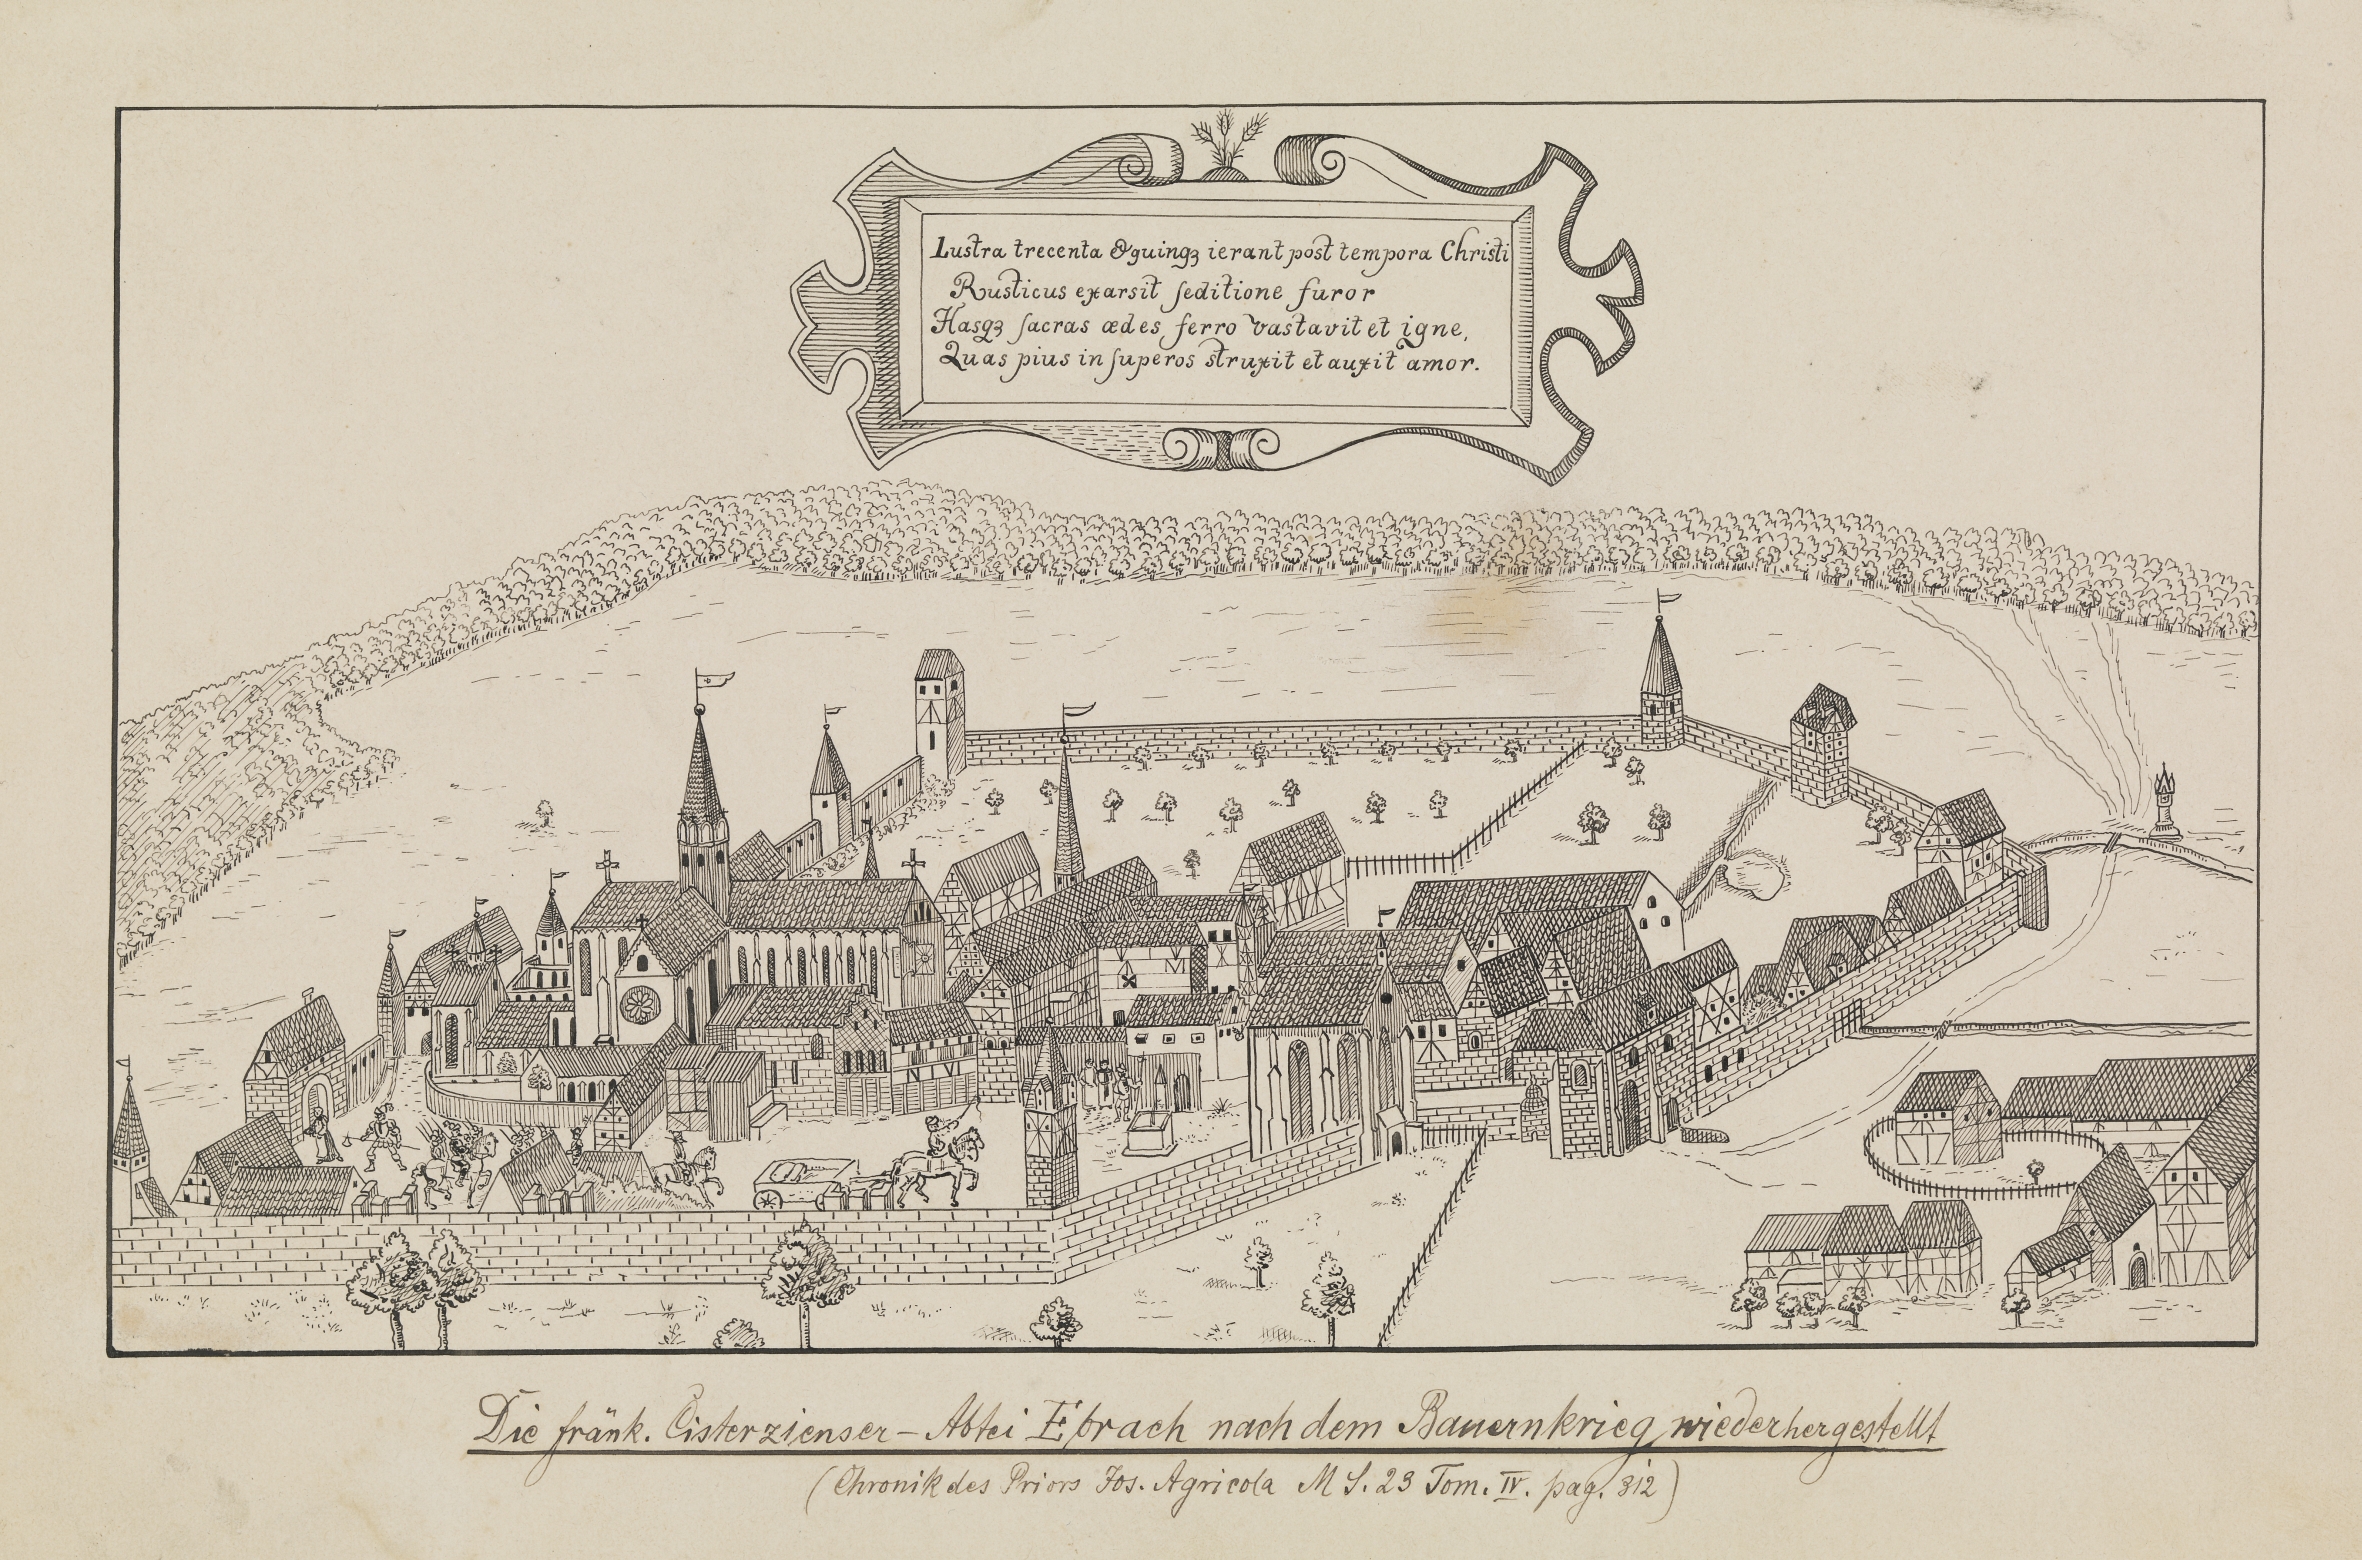 Lustra trecenta & guinqȝ ierant post tempora Christi
Rusticus exarsit ſeditione furor
Hasqȝ ſacras ædes ferro vastavit et igne,
Quas pius in ſuperos struxit et auxit amor.
Die fränk. Cisterzienser - Abtei Ebrach nach dem Bauernkrieg wiederhergestellt
(Chronik des Priors Jos. Agricola M S. 23 Tom. IV. pag. 312)